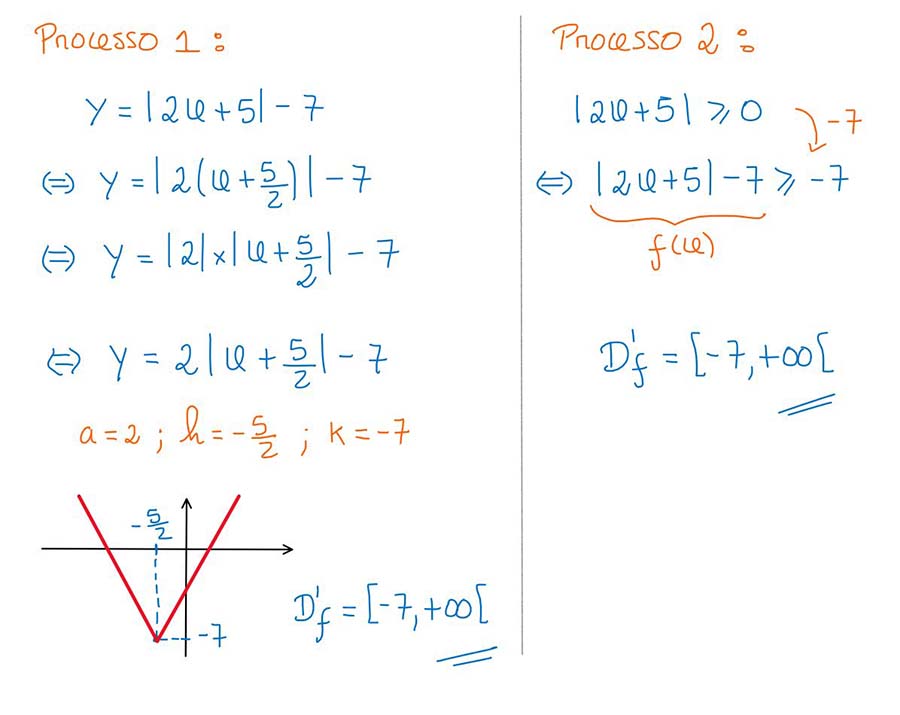 Processo 1 :
y = |2x+5| - 7
⇔ y = |2(x + 5/2)| - 7
⇔ y = |2| × |x + 5/2| - 7
⇔ y = 2|x + 5/2| - 7
a = 2 ; h = -5/2 ; k = -7
-5/2
-7
D'f = [-7, +∞[
Processo 2 :
|2x+5| ⩾ 0
-7
⇔ |2x+5| - 7 ⩾ -7
f(x)
D'f = [-7, +∞[